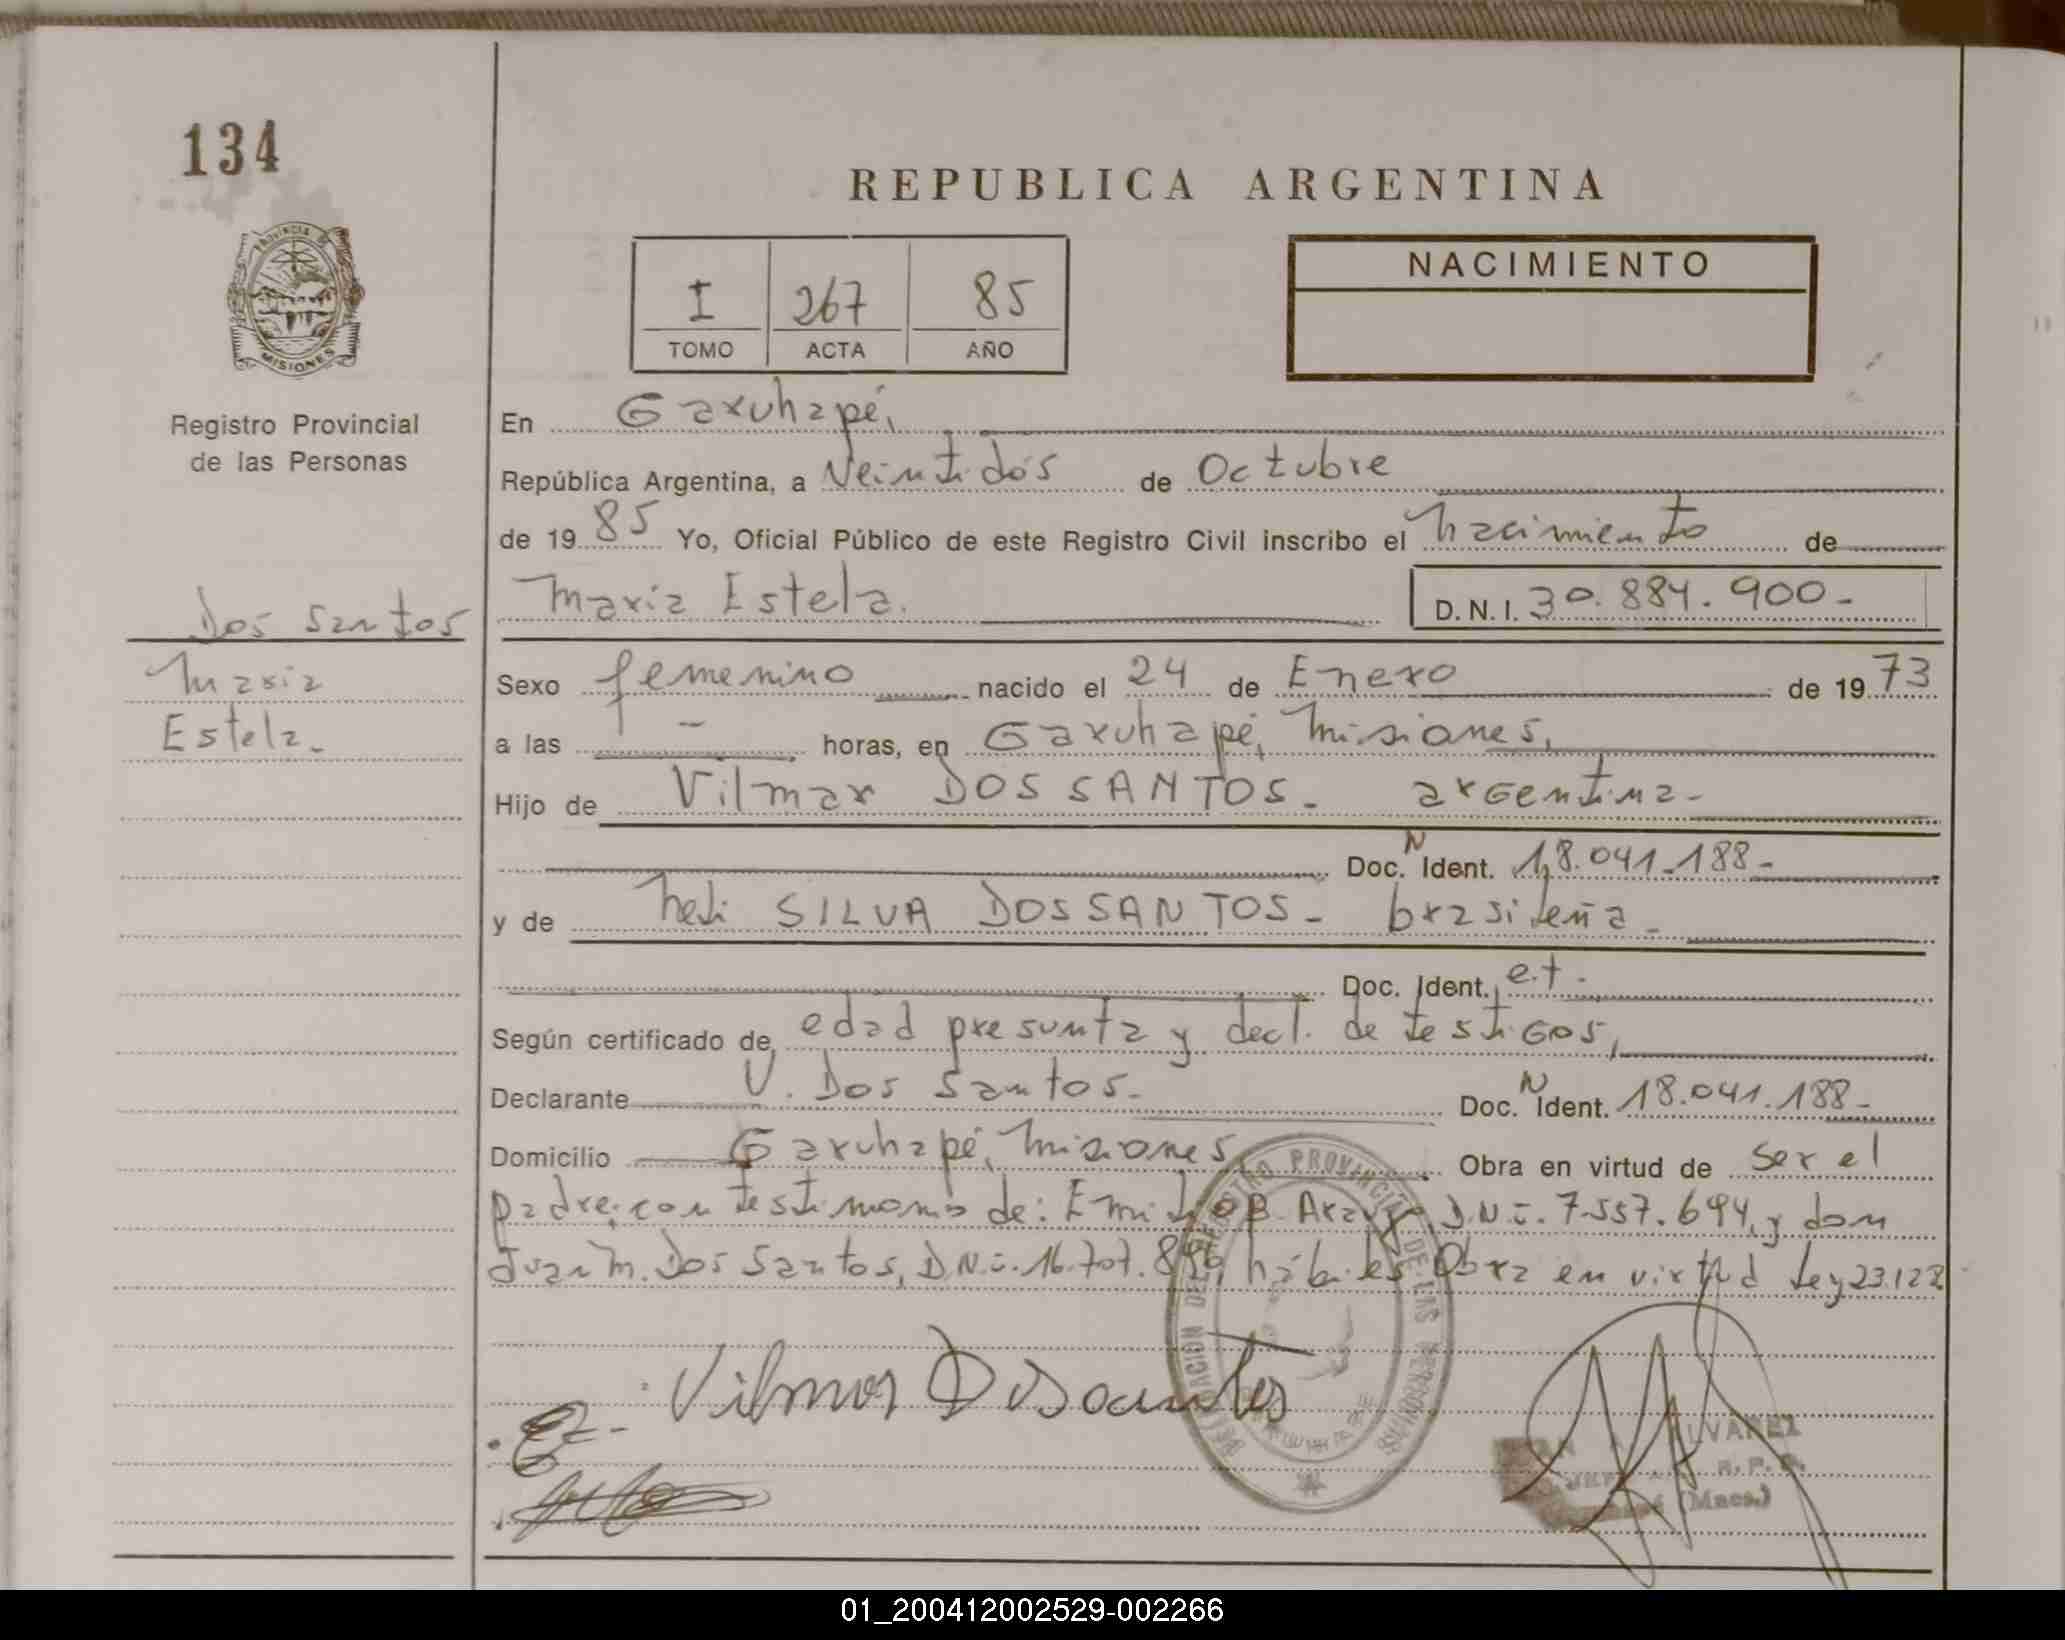 134
REPUBLICA ARGENTINA
PROVINCIA DE
MISIONES
I 267 85
TOMO ACTA AÑO
NACIMIENTO
Registro Provincial
de las Personas
En Garuhapé,
República Argentina, a Veintidós de Octubre
de 19 85 Yo, Oficial Público de este Registro Civil inscribo el nacimiento de
Maria Estela. D.N.I. 30.884.900-
Dos Santos
Maria
Estela.
Sexo femenino nacido el 24 de Enero de 19 73
a las - horas, en Garuhapé, Misiones,
Hijo de Vilmar DOS SANTOS. argentina-
Doc. N Ident. 18.041.188-
y de Neli SILVA DOS SANTOS- brasileña-
Doc. Ident. e.t.
Según certificado de edad presunta y decl. de testigos,
Declarante V. Dos Santos- Doc. N Ident. 18.041.188-
Domicilio Garuhapé, Misiones Obra en virtud de ser el
padre; con testimonio de: Emilio B. Araujo, D.N.i. 7.557.694, y don
Juan M. Dos Santos, D.N.i. 16.707.896, hábiles. Obra en virtud Ley 23.122
Vilmar
PROVINCIAL DE LAS PERSONAS
ALVAREZ
R. P. P.
(Mnes.)
01_200412002529-002266